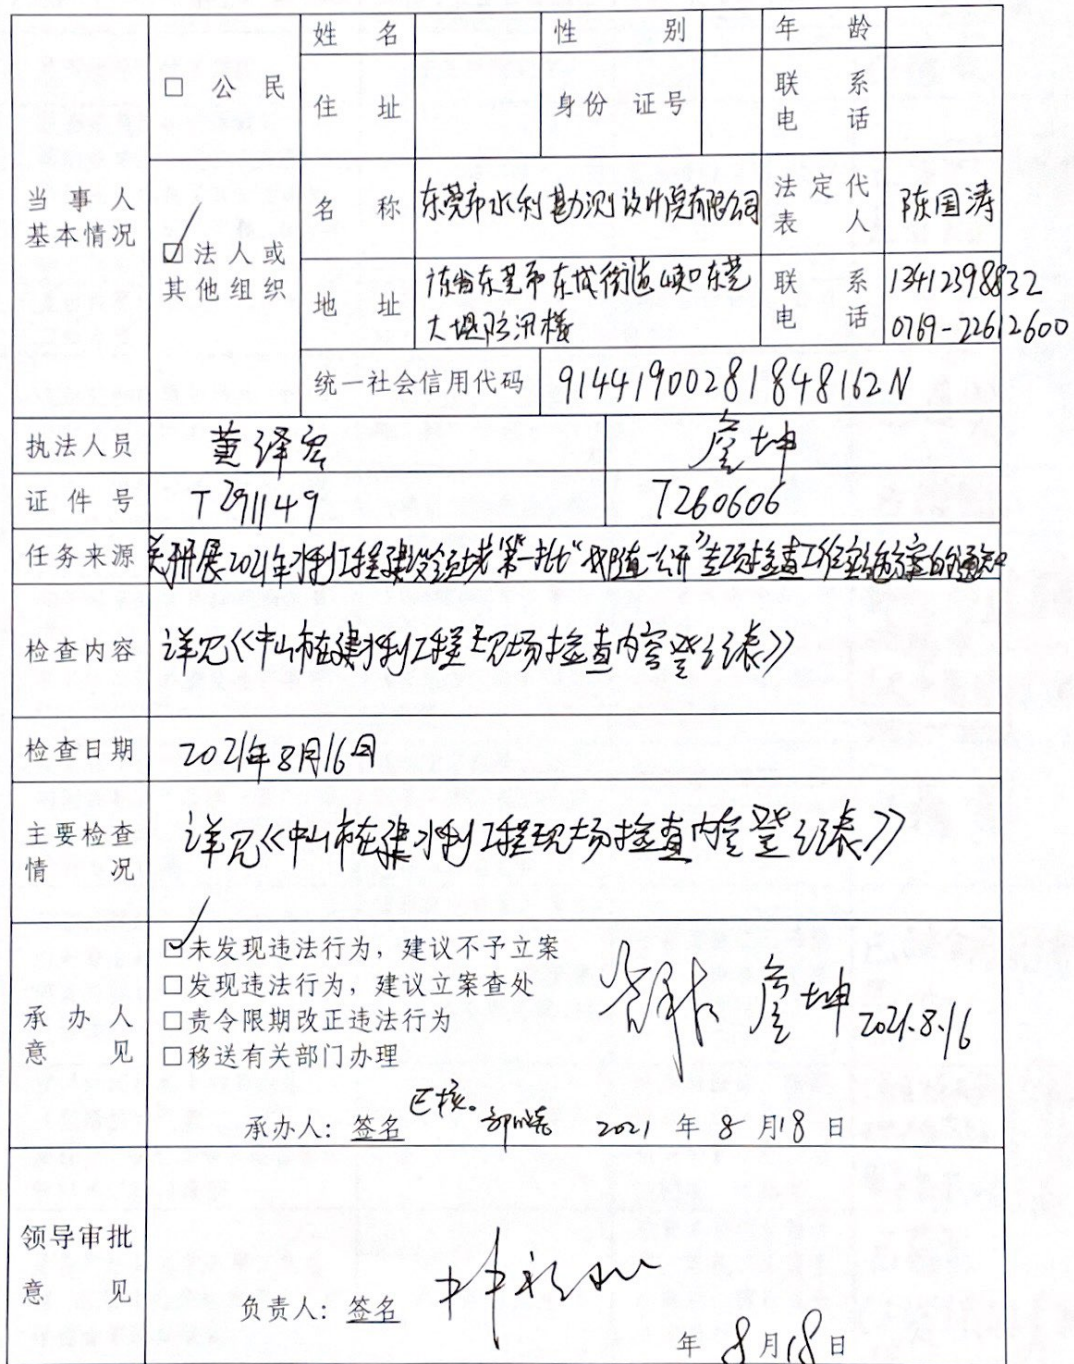 当事人
基本情况
□ 公民
姓名
性别
年龄
住址
身份证号
联系
电话
☑法人或
其他组织
名称
东莞市水利勘测设计院有限公司
法定代
表人
陈国涛
地址
广东省东莞市东城街道峡口东莞
大堤防汛楼
联系
电话
13412398832
0769-22612600
统一社会信用代码
91441900281848162N
执法人员
黄泽宏
詹坤
证件号
T291149
T260606
任务来源
关于开展2021年水利工程建设领域第一批“双随机一公开”专项检查工作实施方案的通知
检查内容
详见《中山市在建水利工程现场检查内容登记表》
检查日期
2021年8月16日
主要检查
情况
详见《中山市在建水利工程现场检查内容登记表》
承办人
意见
☑未发现违法行为，建议不予立案
□发现违法行为，建议立案查处
□责令限期改正违法行为
□移送有关部门办理
詹坤 2021.8.16
已核。
承办人：签名 2021 年 8 月18 日
领导审批
意见
负责人：签名
年 8月18日